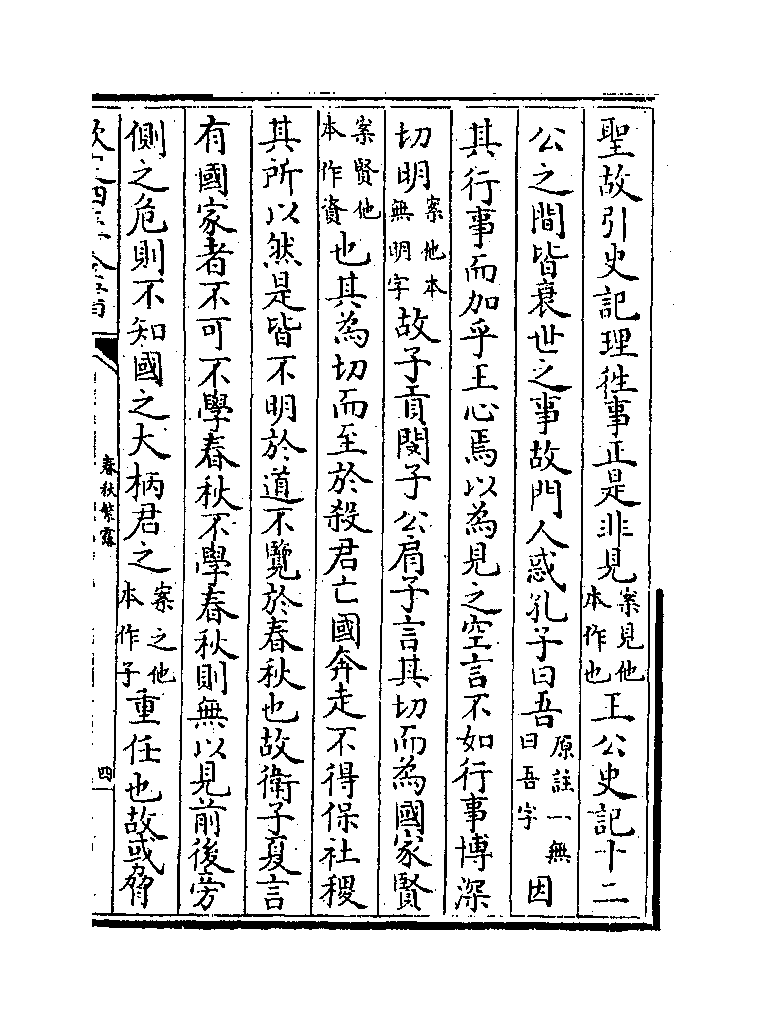 聖故引史記理徃事正是非見案見他本作也王公史記十二
公之間皆衰世之事故門人惑孔子曰吾原註一無曰吾字因
其行事而加乎王心焉以為見之空言不如行事博深
切明案他本無明字故子貢閔子公肩子言其切而為國家賢
案賢他本作資也其為切而至於殺君亡國奔走不得保社稷
其所以然是皆不明於道不覽於春秋也故衛子夏言
有國家者不可不學春秋不學春秋則無以見前後旁
側之危則不知國之大柄君之案之他本作子重任也故或脅
春秋繁露
四